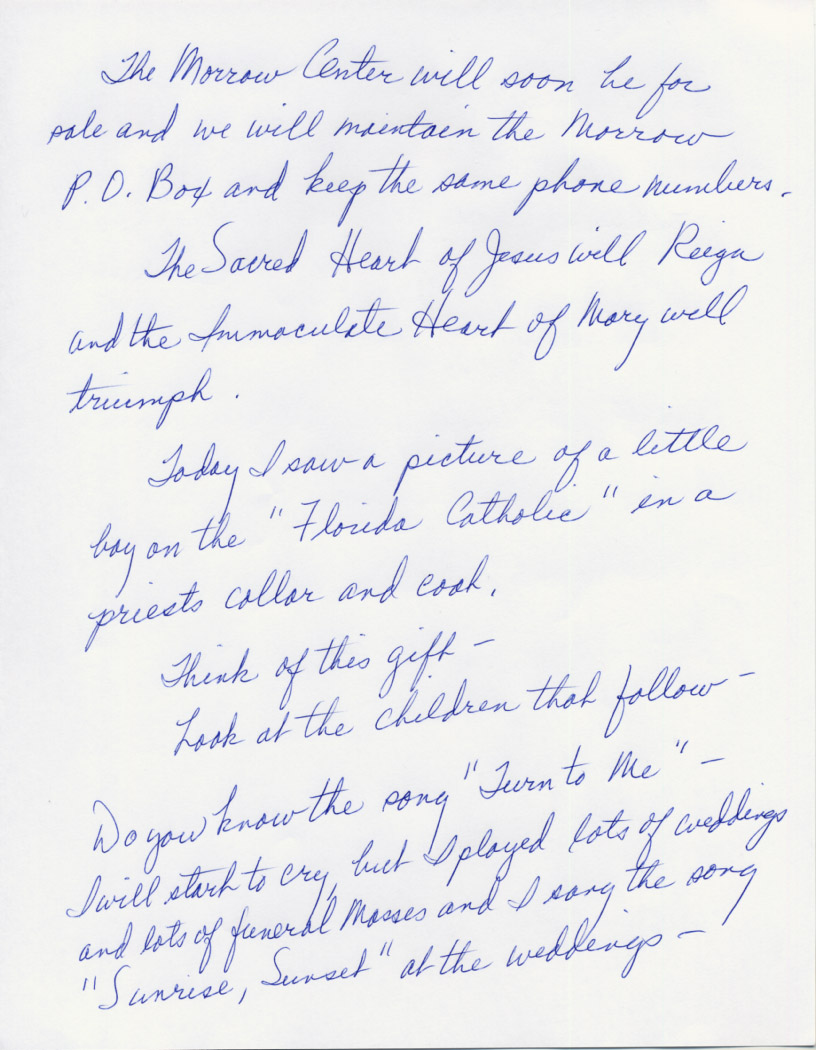 The Morrow Center will soon be for
sale and we will maintain the Morrow
P.O. Box and keep the same phone numbers.
The Sacred Heart of Jesus will Reign
and the Immaculate Heart of Mary will
triumph.
Today I saw a picture of a little
boy on the "Florida Catholic" in a
priests collar and coat.
Think of this gift -
Look at the children that follow -
Do you know the song "Turn to Me" -
I will start to cry, but I played lots of weddings
and lots of funeral Masses and I sang the song
"Sunrise, Sunset" at the weddings -